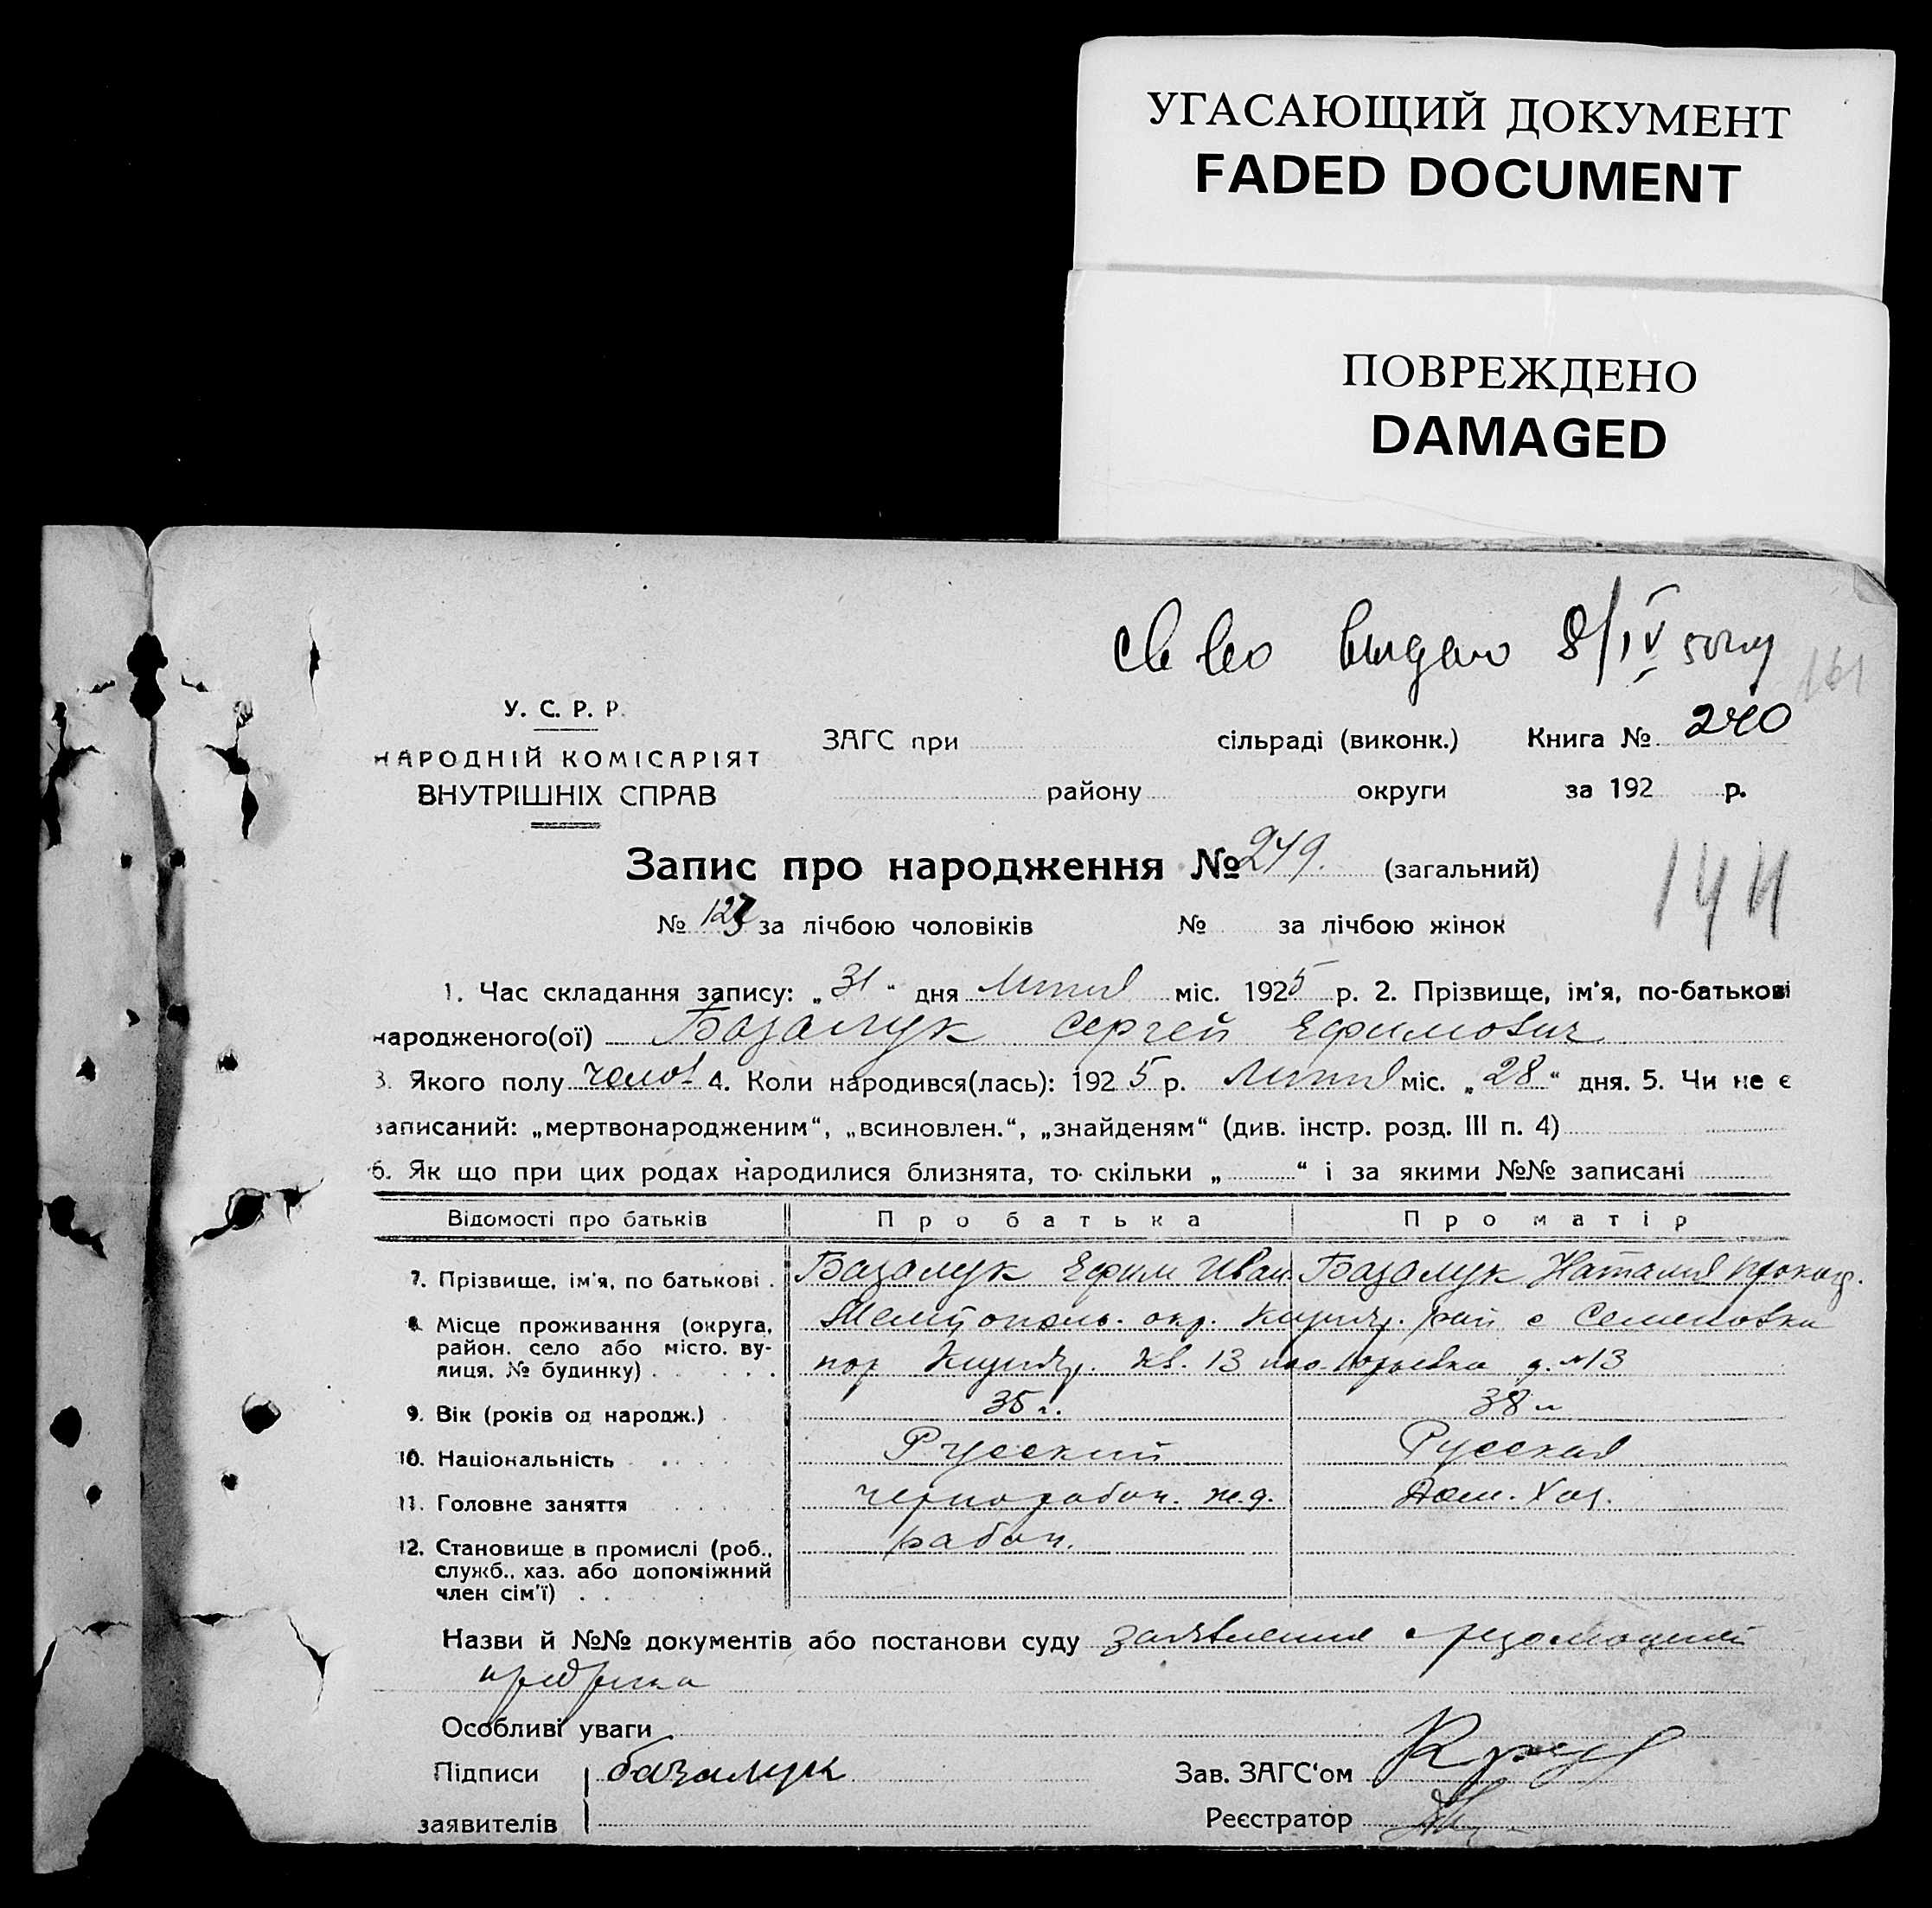 УГАСАЮЩИЙ ДОКУМЕНТ
FADED DOCUMENT
ПОВРЕЖДЕНО
DAMAGED
св во выдано 8/IV 50 году
161
У. С. Р. Р.
НАРОДНІЙ КОМІСАРІЯТ
ВНУТРІШНІХ СПРАВ
ЗАГС при сільраді (виконк.) Книга № 240
району округи за 192 р.
Запис про народження № 249. (загальний)
144
№ 127 за лічбою чоловіків № за лічбою жінок
1. Час складання запису: „31“ дня Липня міс. 1925 р. 2. Прізвище, ім'я, по-батькові
народженого(ої) Базалук Сергей Ефимович
3. Якого полу чолов 4. Коли народився(лась): 1925 р. Липня міс. „28“ дня. 5. Чи не є
записаний: „мертвонародженим“, „всиновлен.“, „знайденям“ (див. інстр. розд. III п. 4)
6. Як що при цих родах народилися близнята, то скільки „ “ і за якими №№ записані
Відомості про батьків Про батька Про матір
7. Прізвище, ім'я, по батькові . Базалук Ефим Иван Базалук Наталия Прокоф.
8. Місце проживання (округа, район. село або місто. вулиця. № будинку) Мелитополь. окр. рай с Семеновка
Кв. 13 д. №13
9. Вік (років од народж.) 35 л. 38 л
10. Національність Русский Русская
11. Головне заняття чернорабоч. ж.д. Дом. Хоз.
12. Становище в промислі (роб., рабоч.
служб., хаз. або допоміжний
член сім'ї)
Назви й №№ документів або постанови суду заявление с резолюцией
Особливі уваги
Підписи базалук Зав. ЗАГС'ом
заявителів Реєстратор